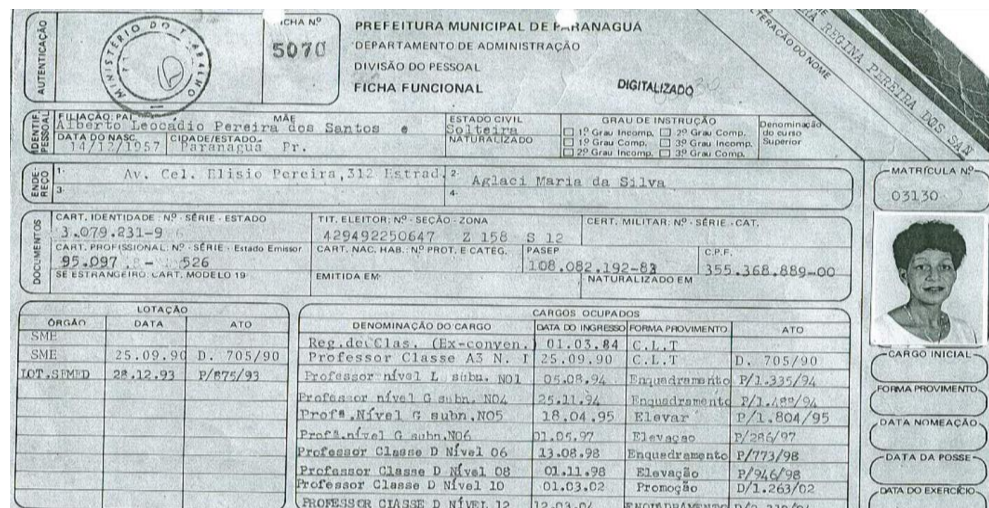 AUTENTICAÇÃO
MINISTERIO DO TRABALHO
FICHA Nº
5070
PREFEITURA MUNICIPAL DE PARANAGUÁ
DEPARTAMENTO DE ADMINISTRAÇÃO
DIVISÃO DO PESSOAL
FICHA FUNCIONAL
DIGITALIZADO
ALTERAÇÃO DO NOME
REGINA PEREIRA DOS SAN
IDENTIF. PESSOAL
FILIAÇÃO: PAI MÃE
Alberto Leocádio Pereira dos Santos e
ESTADO CIVIL
Solteira
GRAU DE INSTRUÇÃO
1º Grau Incomp. 2º Grau Comp.
1º Grau Comp. 3º Grau Incomp.
2º Grau Incomp. 3º Grau Comp.
Denominação do curso Superior
DATA DO NASC. CIDADE/ESTADO NATURALIZADO
14/12/1957 Paranaguá Pr.
ENDEREÇO
1. Av. Cel. Elisio Pereira,312 Estrad. 2. Aglaci Maria da Silva
3. 4.
MATRÍCULA Nº
03130
DOCUMENTOS
CART. IDENTIDADE : Nº - SÉRIE - ESTADO TIT. ELEITOR: Nº - SEÇÃO - ZONA CERT. MILITAR: Nº - SÉRIE - CAT.
3.079.231-9 429492250647 Z 158 S 12
CART. PROFISSIONAL: Nº - SÉRIE - Estado Emissor CART. NAC. HAB.: Nº PROT. E CATEG. PASEP C.P.F.
95.097 - 526 108.082.192-83 355.368.889-00
SE ESTRANGEIRO: CART. MODELO 19 EMITIDA EM NATURALIZADO EM
LOTAÇÃO
ÓRGÃO DATA ATO
SME
SME 25.09.90 D. 705/90
LOT.SEMED 28.12.93 P/875/93
CARGOS OCUPADOS
DENOMINAÇÃO DO CARGO DATA DO INGRESSO FORMA PROVIMENTO ATO
Reg.de Clas. (Ex-conven.) 01.03.84 C.L.T
Professor Classe A3 N. I 25.09.90 C.L.T D. 705/90
Professor nível L subn. N01 05.08.94 Enquadramento P/1.335/94
Professor nível G subn. N04 25.11.94 Enquadramento P/1.489/94
Profª.Nível G subn.N05 18.04.95 Elevar P/1.804/95
Profª.nível G subn.N06 01.05.97 Elevaçao P/286/97
Professor Classe D Nível 06 13.08.98 Enquadramento P/773/98
Professor Classe D Nível 08 01.11.98 Elevação P/946/98
Professor Classe D Nível 10 01.03.02 Promoção D/1.263/02
PROFESSOR CLASSE D NÍVEL 12 12.03.04 ENQUADRAMENTO
CARGO INICIAL
FORMA PROVIMENTO
DATA NOMEAÇÃO
DATA DA POSSE
DATA DO EXERCÍCIO